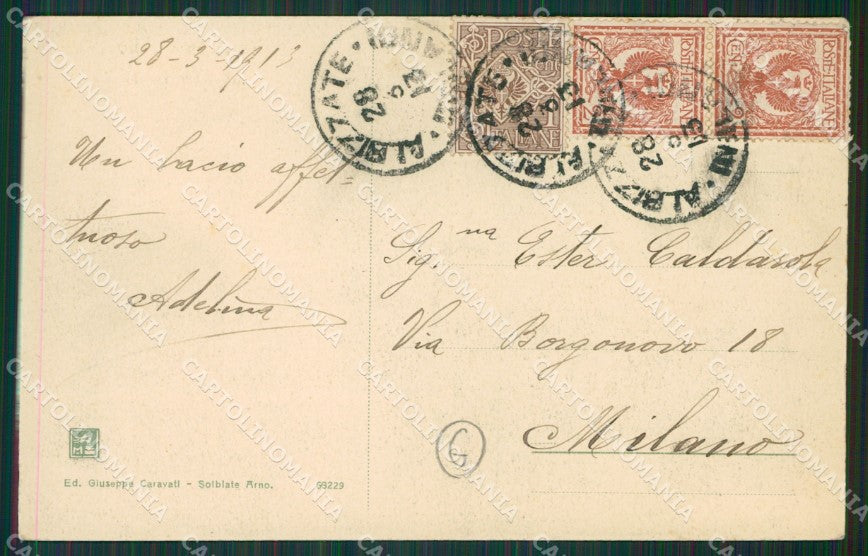 28-3-1913
Un bacio affet-
tuoso
Adelina
Sig.na Ester Caldarola
Via Borgonovo 18
Milano
G
Ed. Giuseppe Caravati - Solbiate Arno. 69229
ALBIZZATE
28
13
ALBIZZATE
28
13
ALBIZZATE
28
13
POSTE ITALIANE
POSTE ITALIANE
CARTOLINOMANIA